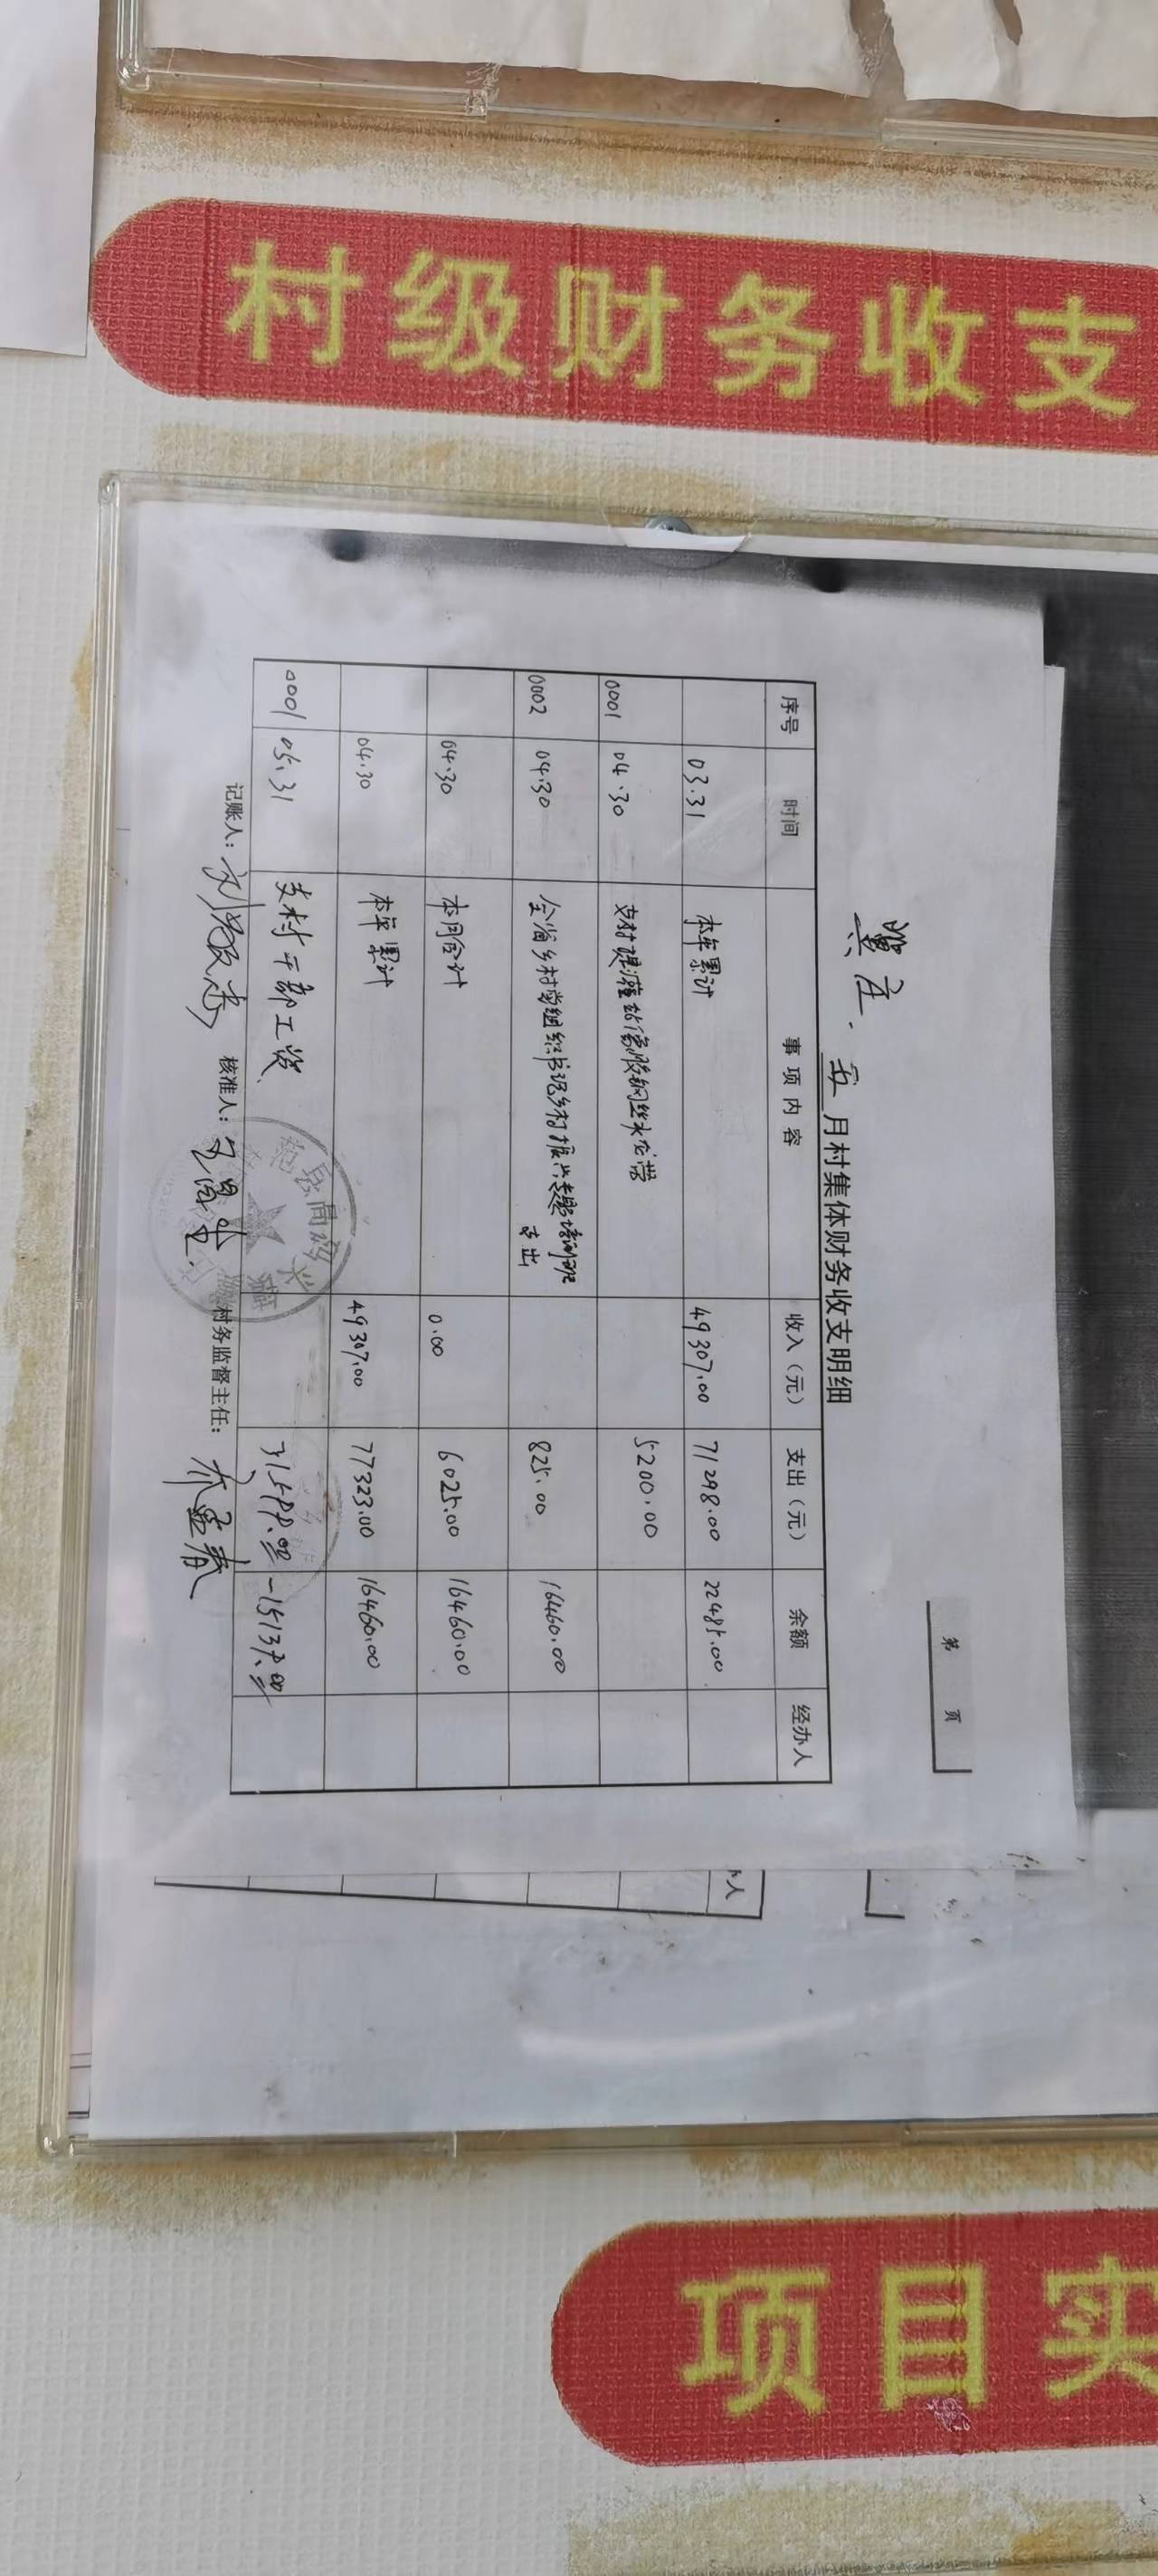 村级财务收支
第 页
冀庄 五 月村集体财务收支明细
序号 时间 事项内容 收入（元） 支出（元） 余额 经办人
03.31 本年累计 49307.00 71298.00 22485.00
0001 04.30 支村提灌站傣胶钢丝水龙带 5200.00
0002 04.30 全省乡村党组织书记乡村振兴专题培训班支出 825.00 16460.00
04.30 本月合计 0.00 6025.00 16460.00
04.30 本年累计 49307.00 77323.00 16460.00
0001 05.31 支村干部工资 31597.00 -15137.00
记账人： 核准人： 村务监督主任：
人
项目实